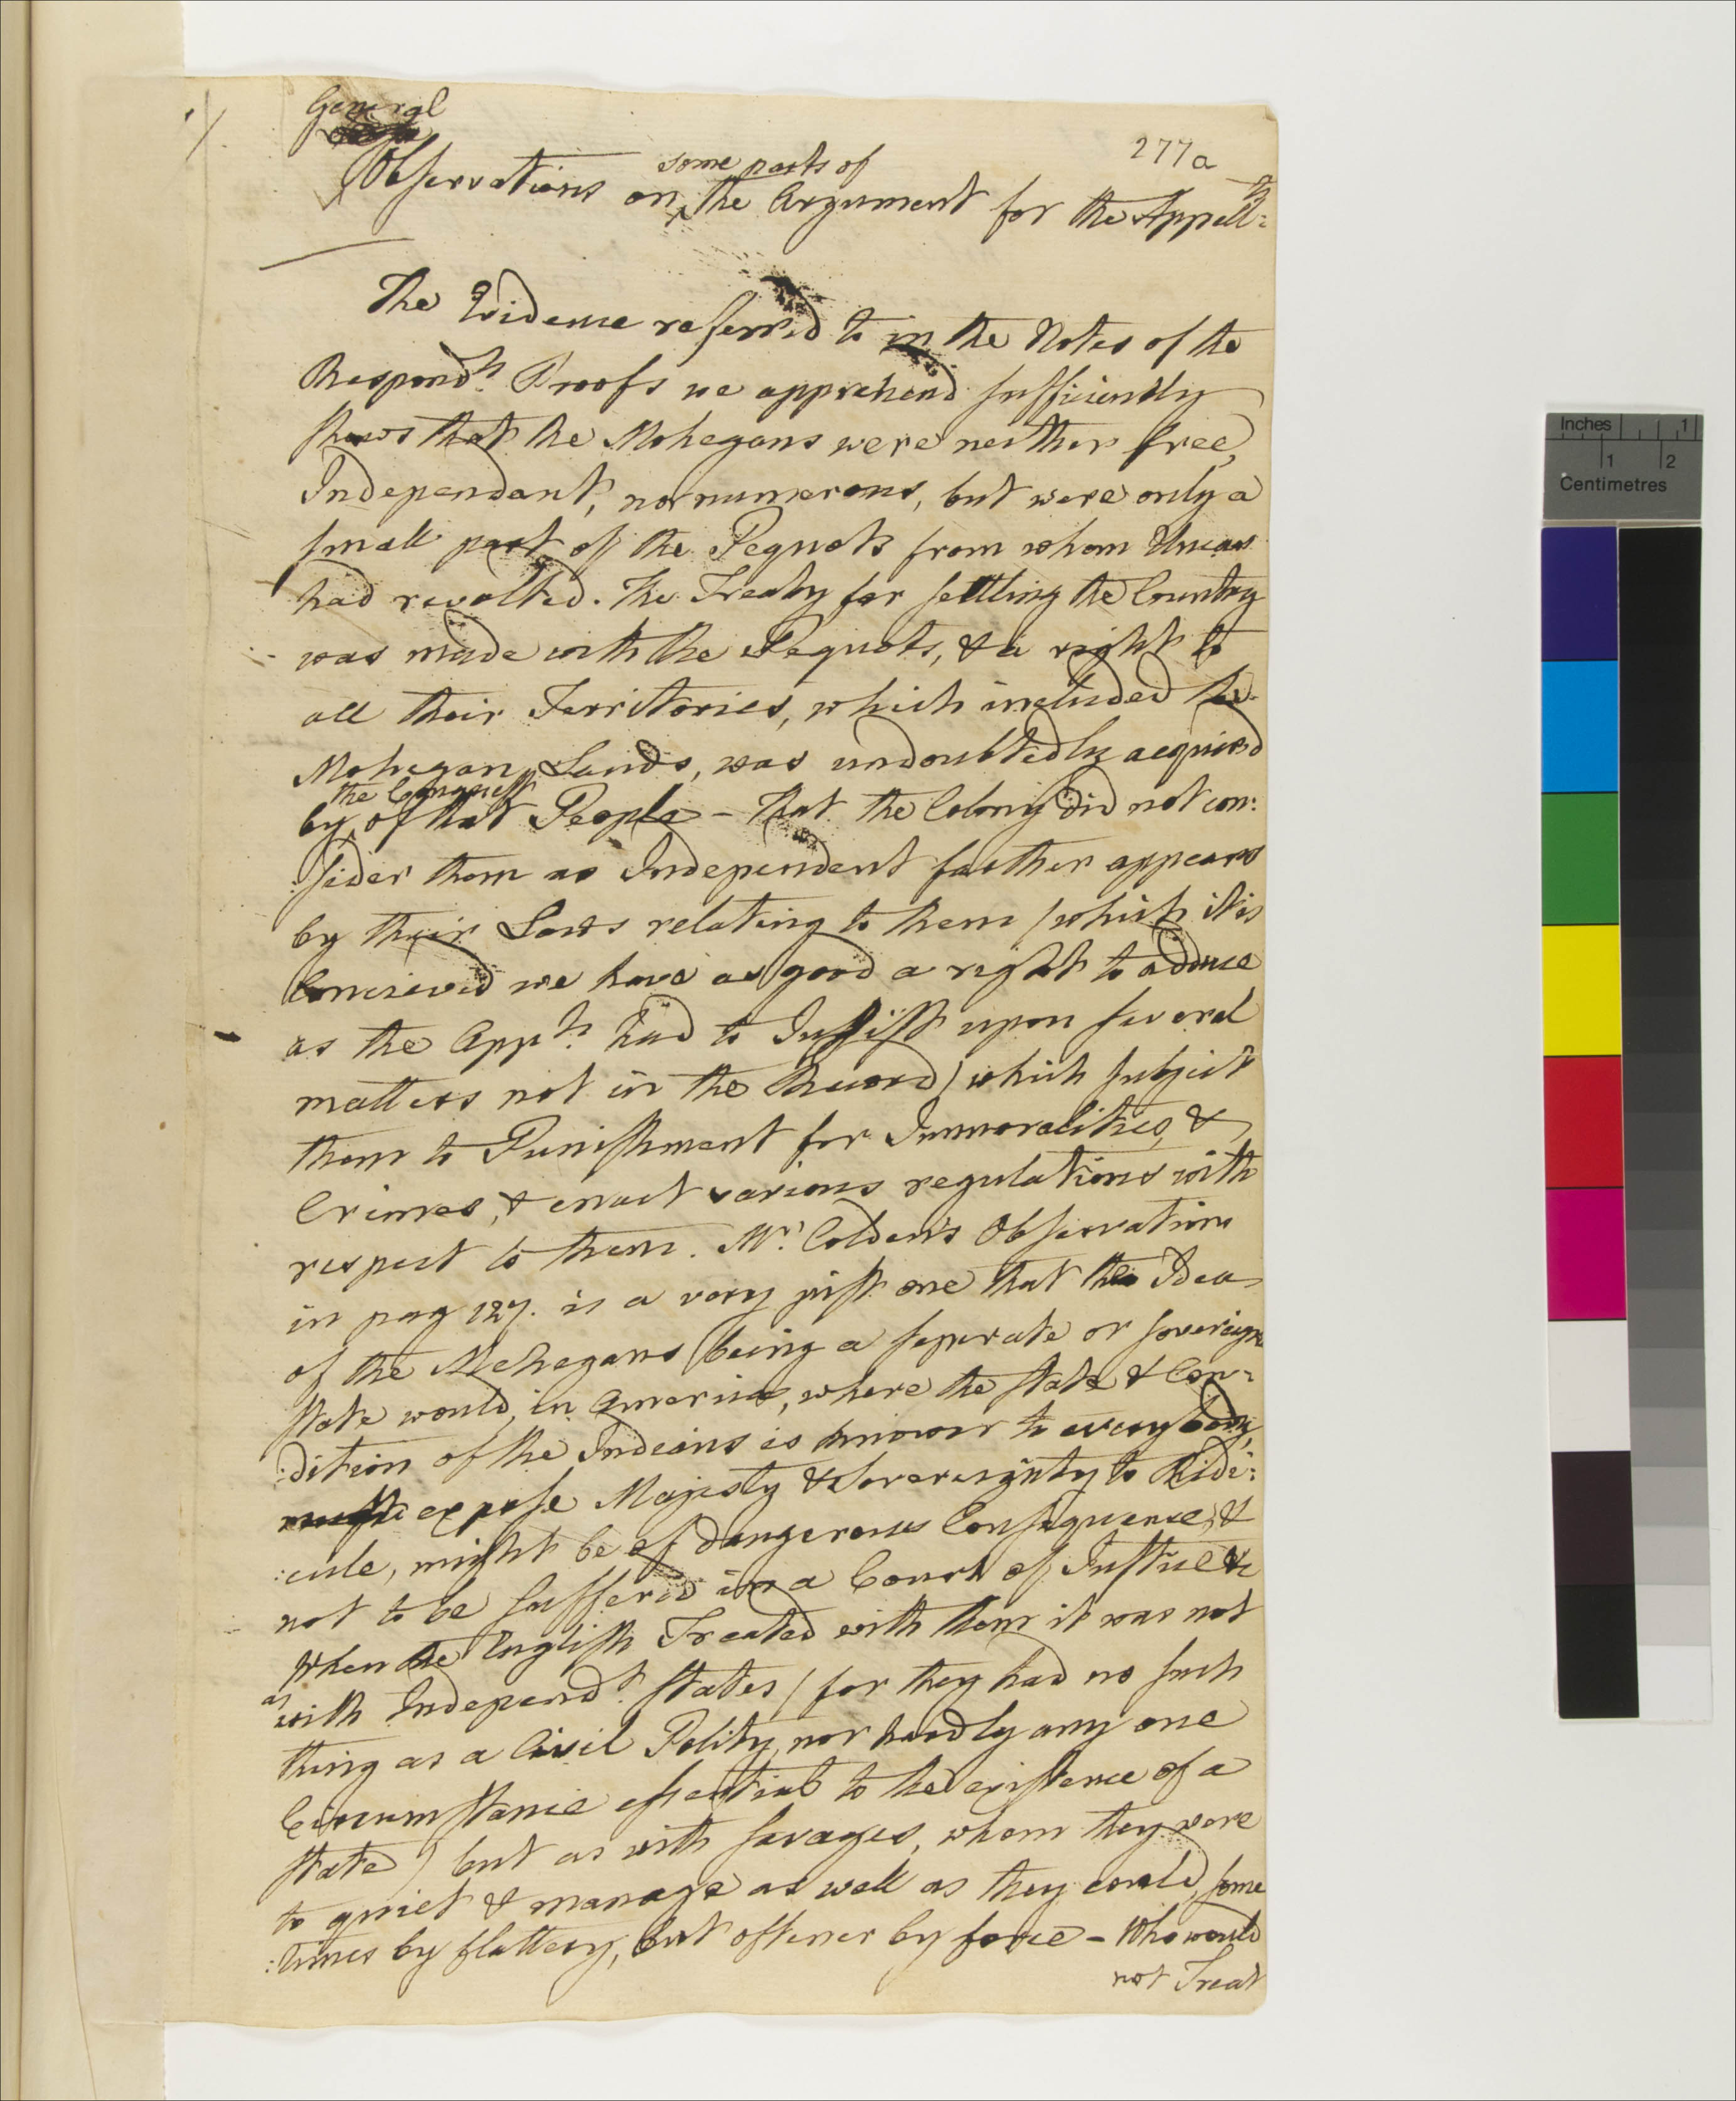 General
277a
some parts of
Observations on the Argument for the Appellts:
The Evidence referred to in the Notes of the
Respondts. Proofs we apprehend sufficiently
shews that the Mohegans were neither free,
Independant, nor numerous, but were only a
small part of the Pequots from whom Uncas
had revolted. The Treaty for settling the Country
was made with the Pequots, & a right to
all their Territories, which included the
Mohegan Lands, was undoubtedly acquired
the Conquest
by of that People - That the Colony did not con:
:sider them as Independent farther appears
by their Laws relating to them (which it is
Conceived we have as good a right to adduce
as the Appts. had to Insist upon several
matters not in the Record) which subject
them to Punishment for Immoralities, &
Crimes, & enact various regulations with
respect to them. Mr. Colden's Observation
in pag 127. is a very just one that the Idea
of the Mohegans being a seperate or sovereign
state would, in America, where the state & Con:
:dition of the Indians is known to every body,
expose Majesty & Sovereignty to Ridi:
:cule, might be of dangerous Consequence, &
not to be suffered in a Court of Justice &c
When the English Treated with them it was not
as
with Independt. States (for they had no such
thing as a Civil Polity, nor hardly any one
Circumstance essential to the existence of a
state) but as with savages, whom they were
to quiet & manage as well as they could, some
:times by flattery, but oftener by force - Who would
not Treat